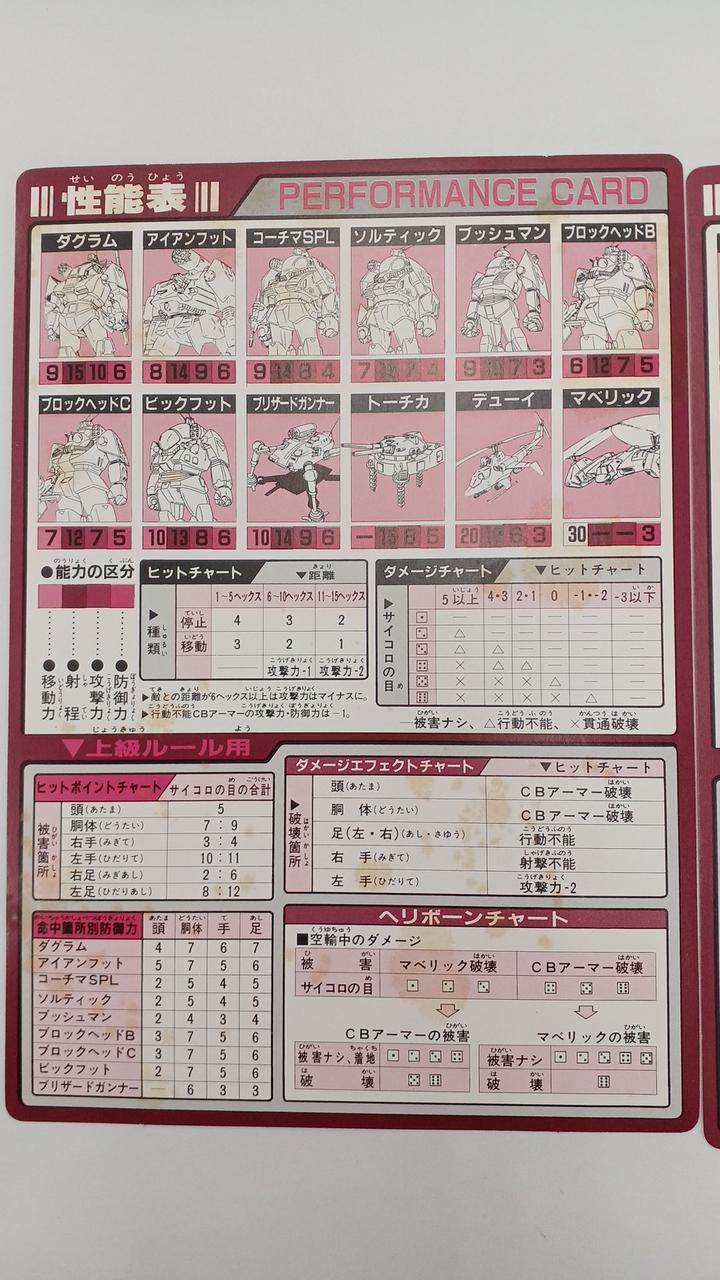 性能表 PERFORMANCE CARD
せい のう ひょう
ダグラム アイアンフット コーチマSPL ソルティック ブッシュマン ブロックヘッドB
9 15 10 6 8 14 9 6 9 14 8 4 7 7 3 6 12 7 5
ブロックヘッドC ビックフット ブリザードガンナー トーチカ デューイ マベリック
7 12 7 5 10 13 8 6 10 14 9 6 — 15 8 5 20 12 6 3 30 — — 3
●能力の区分
のうりょく くぶん
移動力 射程 攻撃力 防御力
ヒットチャート ▼距離
きょり
1~5ヘックス 6~10ヘックス 11~15ヘックス
▶種類
しゅるい
停止 4 3 2
ていし
移動 3 2 1
いどう
— 攻撃力-1 攻撃力-2
こうげきりょく こうげきりょく
▶敵との距離が6ヘックス以上は攻撃力はマイナスに。
▶行動不能CBアーマーの攻撃力・防御力は−1。
ダメージチャート ▼ヒットチャート
5以上 4・3 2・1 0 -1・-2 -3以下
▶サイコロの目
⚀
⚁ △
⚂ △ △
⚃ × △ △
⚄ × × × △
⚅ × × × × △
—被害ナシ、△行動不能、×貫通破壊
▼上級ルール用
じょうきゅう よう
ヒットポイントチャート サイコロの目の合計
被害箇所
頭(あたま) 5
胴体(どうたい) 7:9
右手(みぎて) 3:4
左手(ひだりて) 10:11
右足(みぎあし) 2:6
左足(ひだりあし) 8:12
ダメージエフェクトチャート ▼ヒットチャート
▶破壊箇所
頭(あたま) CBアーマー破壊
胴体(どうたい) CBアーマー破壊
足(左・右)(あし・さゆう) 行動不能
右手(みぎて) 射撃不能
左手(ひだりて) 攻撃力-2
命中箇所別防御力 頭 胴体 手 足
ダグラム 4 7 6 7
アイアンフット 5 7 5 6
コーチマSPL 2 5 4 5
ソルティック 2 5 4 5
ブッシュマン 2 4 3 4
ブロックヘッドB 3 7 5 6
ブロックヘッドC 3 7 5 6
ビックフット 2 7 5 6
ブリザードガンナー — 6 3 3
ヘリボーンチャート
■空輸中のダメージ
くうゆちゅう
被害 マベリック破壊 CBアーマー破壊
サイコロの目 ⚀ ⚁ ⚂ ⚃ ⚄ ⚅
CBアーマーの被害 マベリックの被害
被害ナシ、着地 ⚀ ⚁ ⚂ ⚃ 被害ナシ ⚀ ⚁ ⚂ ⚃ ⚄
破壊 ⚄ ⚅ 破壊 ⚅